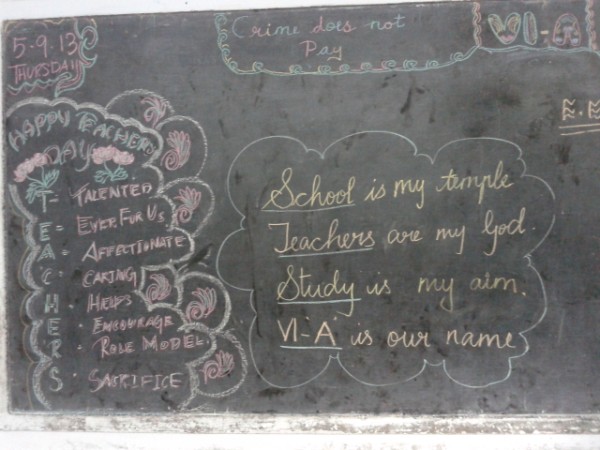 5.9.13
THURSDAY
Crime does not
Pay
VI-A
HAPPY TEACHERS
DAY
T- TALENTED
E- EVER FOR US
A- AFFECTIONATE
C- CARING
H- HELPS
E- ENCOURAGE
R- ROLE MODEL
S- SACRIFICE
School is my temple
Teachers are my God.
Study is my aim.
VI-A is our name